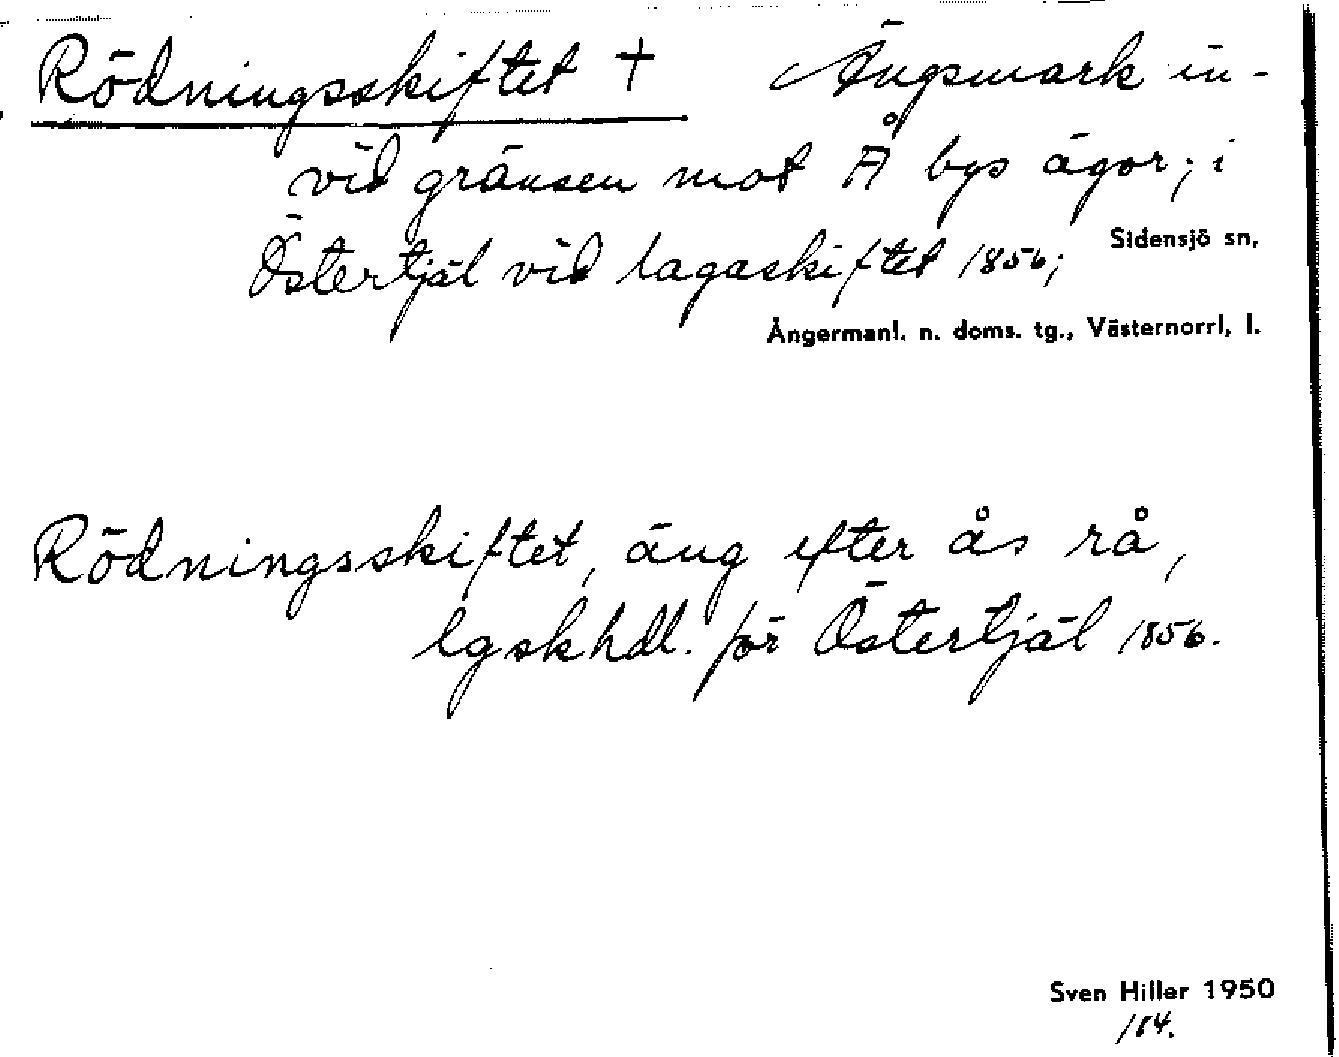 Rödningsskiftet + Ängsmark in-
vid gränsen mot Å bys ägor; i
Östertjäl vid lagaskiftet 1856;
Sidensjö sn,
Ångermanl. n. doms. tg., Västernorrl, l.
Rödningsskiftet, äng efter ås rå,
lgskhdl. för Östertjäl 1856.
Sven Hiller 1950
184.